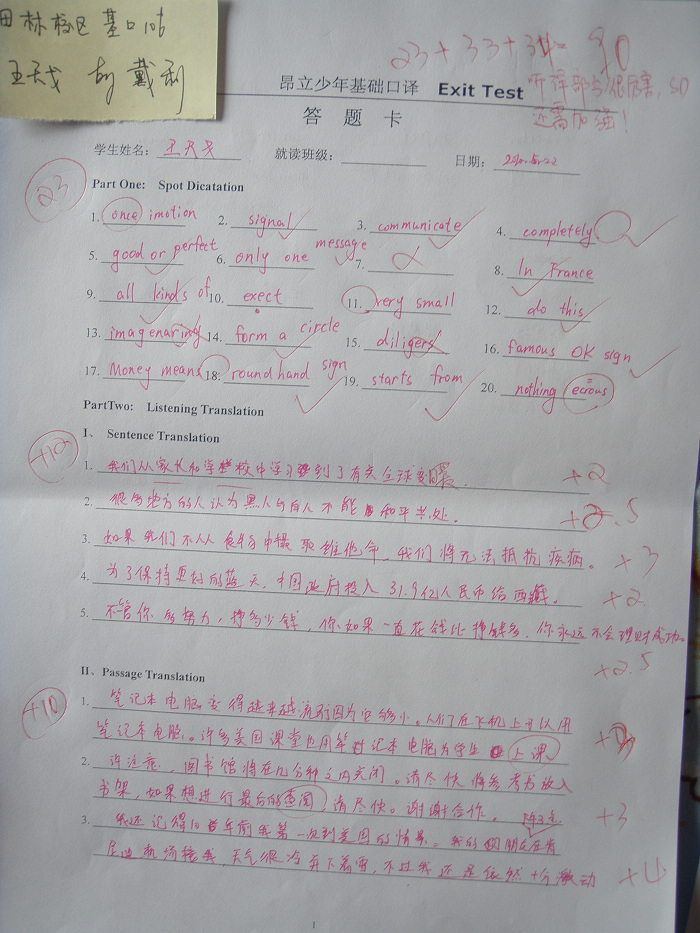 田林校区 基口106
王天戈 by 戴利
23+33+34=90
昂立少年基础口译 Exit Test
听译部分很厉害, SD
答 题 卡
还需加强!
学生姓名: 王天戈 就读班级: 日期:
23
Part One: Spot Dicatation
1. once imotion 2. signal 3. communicate 4. completely
5. good or perfect 6. only one message 7. 8. In France
9. all kinds of 10. exect 11. very small 12. do this
13. imagenaring 14. form a circle 15. diligers 16. famous OK sign
17. Money means 18. round hand sign 19. starts from 20. nothing ecrous
PartTwo: Listening Translation
I、 Sentence Translation
+12
1. 我们从家长和学校中学习到了有关全球变暖。 +2
2. 很多地方的人认为黑人与白人不能和平共处。 +2.5
3. 如果我们不从食物中摄取维他命,我们将无法抵抗疾病。 +3
4. 为了保持更好的蓝天,中国政府投入31.9亿人民币给西藏。 +2
5. 不管你多努力,挣多少钱,你如果一直花钱比挣钱多,你永远不会理财成功。
+2.5
II、Passage Translation
+10
1. 笔记本电脑变得越来越流行因为它够小。人们在飞机上可以用
笔记本电脑。许多美国课堂也用笔记本电脑为学生上课
2. 请注意,图书馆将在几分钟之内关闭。请尽快将参考书放入
书架,如果想进行最后的查阅,请尽快。谢谢合作。 +3
3. 我还记得10年前我第一次到美国的情景。我的朋友在肯
尼迪机场接我,天气很冷并下着雪,不过我还是依然十分激动 +4
1